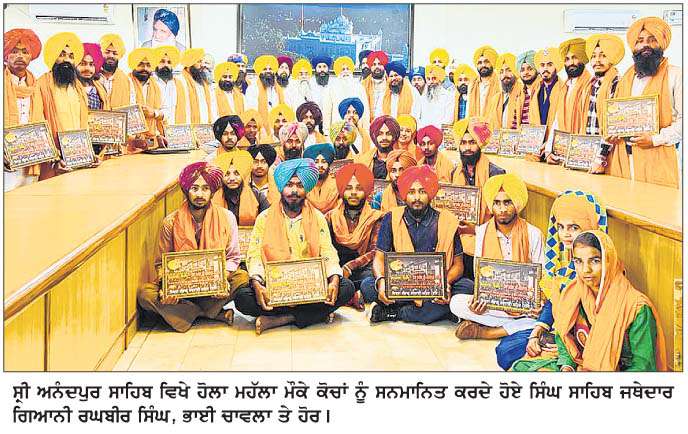 ਸ੍ਰੀ ਅਨੰਦਪੁਰ ਸਾਹਿਬ ਵਿਖੇ ਹੋਲਾ ਮਹੱਲਾ ਮੌਕੇ ਕੋਚਾਂ ਨੂੰ ਸਨਮਾਨਿਤ ਕਰਦੇ ਹੋਏ ਸਿੰਘ ਸਾਹਿਬ ਜਥੇਦਾਰ
ਗਿਆਨੀ ਰਘਬੀਰ ਸਿੰਘ, ਭਾਈ ਚਾਵਲਾ ਤੇ ਹੋਰ।